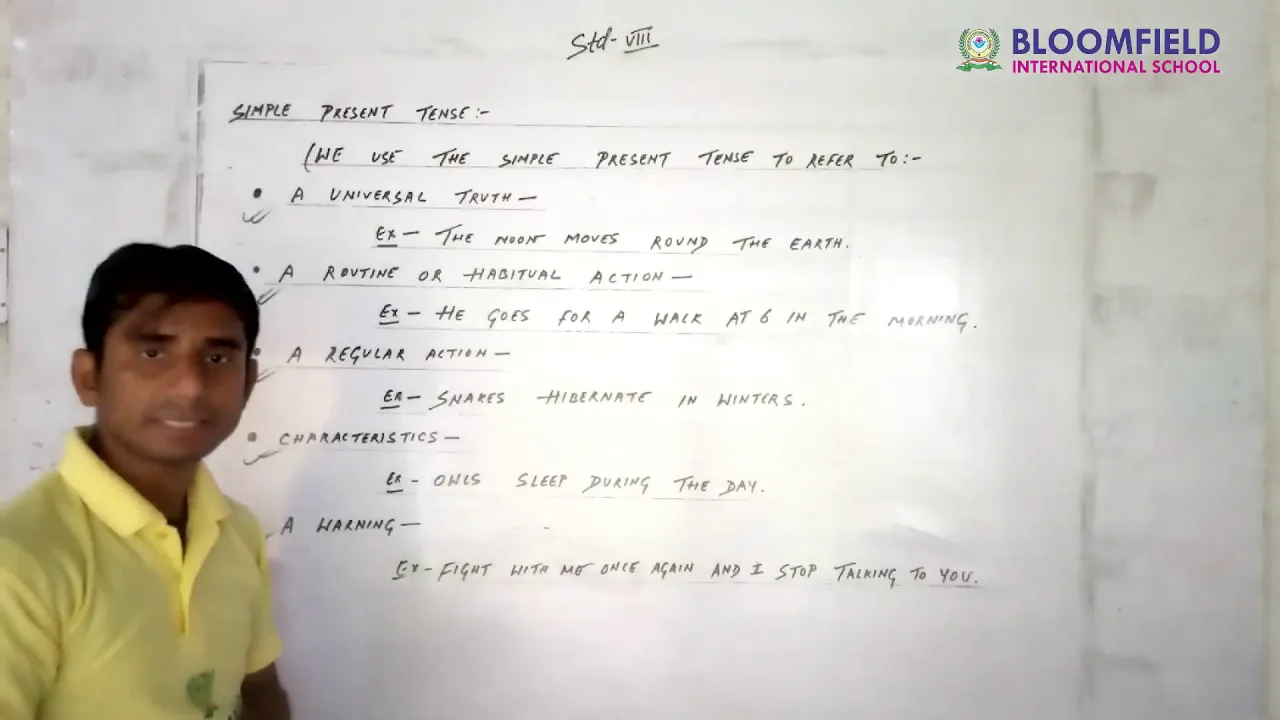 Std- VIII
BLOOMFIELD
INTERNATIONAL SCHOOL
SIMPLE PRESENT TENSE:-
(WE USE THE SIMPLE PRESENT TENSE TO REFER TO:-
• A UNIVERSAL TRUTH-
Ex- THE MOON MOVES ROUND THE EARTH.
• A ROUTINE OR HABITUAL ACTION-
Ex- HE GOES FOR A WALK AT 6 IN THE MORNING.
• A REGULAR ACTION-
Ex- SNAKES HIBERNATE IN WINTERS.
• CHARACTERISTICS-
Ex- OWLS SLEEP DURING THE DAY.
A WARNING-
Ex- FIGHT WITH ME ONCE AGAIN AND I STOP TALKING TO YOU.